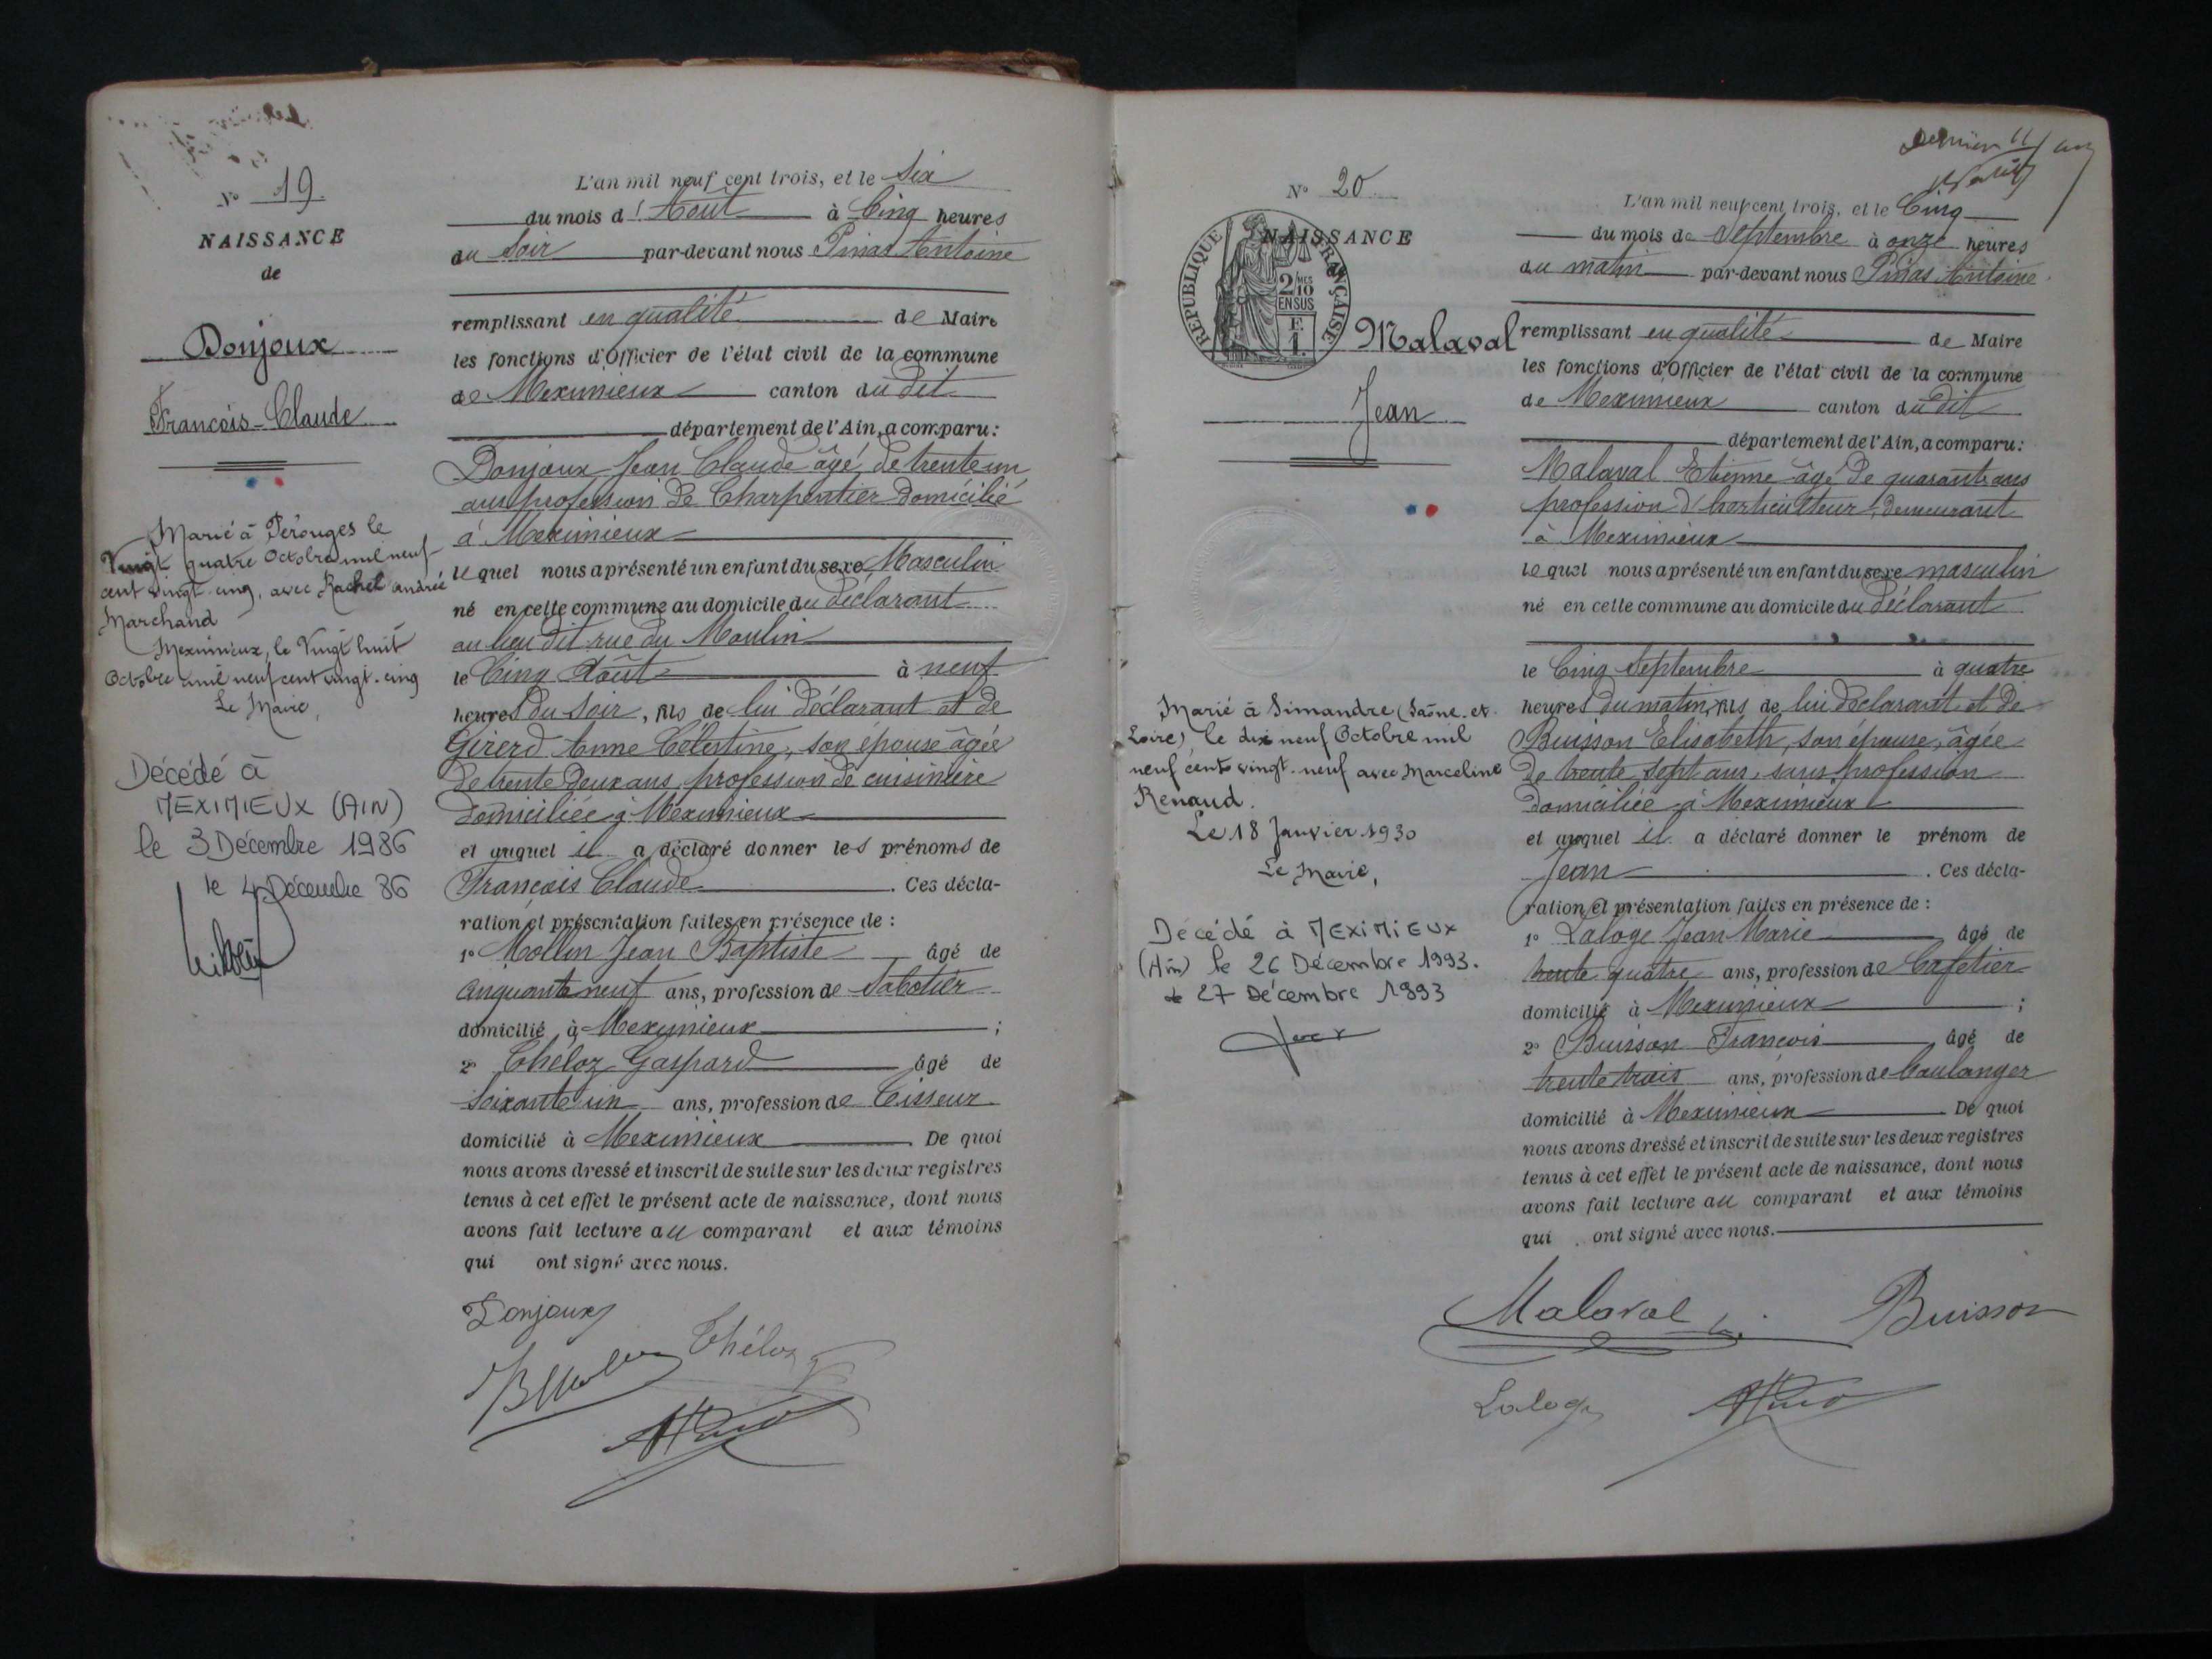 N° 19
NAISSANCE
de
Donjoux
François-Claude
Marié à Pérouges le
Vingt quatre Octobre mil neuf
cent vingt cinq, avec Rachel Andrée
Marchand
Meximieux, le Vingt huit
Octobre mil neuf cent vingt-cinq
Le Maire,
Décédé à
MEXIMIEUX (AIN)
le 3 Décembre 1986
le 4 Décembre 86
L'an mil neuf cent trois, et le Six
du mois d'Août à Cinq heures
du Soir par-devant nous Pinas Antoine
remplissant en qualité de Maire
les fonctions d'Officier de l'état civil de la commune
de Meximieux canton du dit
département de l'Ain, a comparu:
Donjoux Jean Claude âgé de trente un
ans profession de Charpentier domicilié
à Meximieux
lequel nous a présenté un enfant du sexe Masculin
né en cette commune au domicile du déclarant
au lieu dit rue du Moulin
le Cinq Août à neuf
heures du Soir, fils de lui déclarant et de
Girerd Anne Célestine, son épouse âgée
de trente deux ans, profession de cuisinière
domiciliée à Meximieux
et auquel il a déclaré donner les prénoms de
François Claude . Ces décla-
ration et présentation faites en présence de :
1° Mollin Jean Baptiste âgé de
cinquante neuf ans, profession de Sabotier
domicilié à Meximieux ;
2° Théloz Gaspard âgé de
Soixante un ans, profession de Tisseur
domicilié à Meximieux . De quoi
nous avons dressé et inscrit de suite sur les deux registres
tenus à cet effet le présent acte de naissance, dont nous
avons fait lecture au comparant et aux témoins
qui ont signé avec nous.
Donjoux
Théloz
N° 20
NAISSANCE
RÉPUBLIQUE FRANÇAISE
2/10
EN SUS
Malaval
Jean
Marié à Simandre (Saône-et-
Loire) le dix neuf Octobre mil
neuf cent vingt-neuf avec Marceline
Renaud.
Le 18 Janvier 1930
Le Maire,
Décédé à MEXIMIEUX
(Ain) le 26 Décembre 1993.
le 27 Décembre 1993
L'an mil neuf cent trois, et le Cinq
du mois de Septembre à onze heures
du matin par-devant nous Pinas Antoine
remplissant en qualité de Maire
les fonctions d'Officier de l'état civil de la commune
de Meximieux canton du dit
département de l'Ain, a comparu:
Malaval Etienne âgé de quarante ans
profession d'horticulteur, demeurant
à Meximieux
lequel nous a présenté un enfant du sexe masculin
né en cette commune au domicile du déclarant
le Cinq Septembre à quatre
heures du matin, fils de lui déclarant et de
Buisson Elisabeth, son épouse, âgée
de trente sept ans, sans profession
domiciliée à Meximieux
et auquel il a déclaré donner le prénom de
Jean . Ces décla-
ration et présentation faites en présence de :
1° Laloge Jean Marie âgé de
trente quatre ans, profession de Cafetier
domicilié à Meximieux ;
2° Buisson François âgé de
trente trois ans, profession de boulanger
domicilié à Meximieux De quoi
nous avons dressé et inscrit de suite sur les deux registres
tenus à cet effet le présent acte de naissance, dont nous
avons fait lecture au comparant et aux témoins
qui ont signé avec nous.
Malaval
Buisson
Laloge